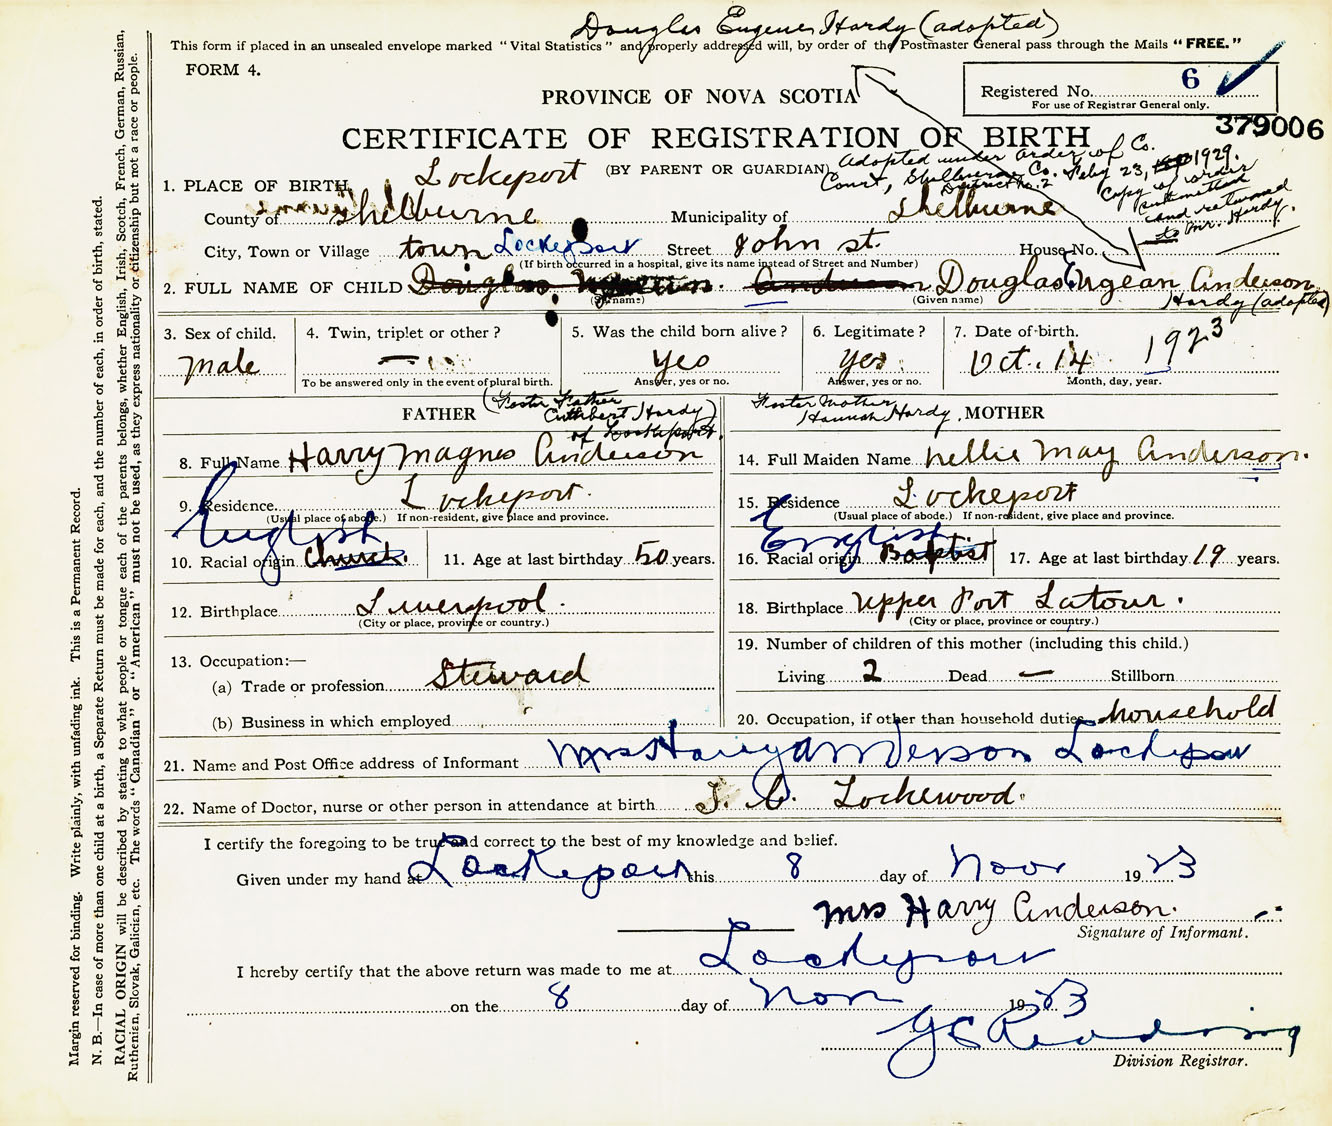 Douglas Eugene Hardy (adopted)
This form if placed in an unsealed envelope marked "Vital Statistics" and properly addressed will, by order of the Postmaster General pass through the Mails "FREE."
FORM 4.
Registered No. 6
For use of Registrar General only.
PROVINCE OF NOVA SCOTIA
379006
CERTIFICATE OF REGISTRATION OF BIRTH
(BY PARENT OR GUARDIAN)
Adopted under order of Co.
Court, Shelburne Co. Feby 23, 1929.
District No. 2
Copy of order
submitted
and returned
to Mr. Hardy.
1. PLACE OF BIRTH Lockeport
County of Shelburne Municipality of Shelburne
City, Town or Village town Lockeport Street John st. House No.
(If birth occurred in a hospital, give its name instead of Street and Number)
2. FULL NAME OF CHILD Douglas Anderson Douglas Eugean Anderson
(Surname) (Given name)
Hardy (adopted)
3. Sex of child. 4. Twin, triplet or other? 5. Was the child born alive? 6. Legitimate? 7. Date of birth.
male — yes yes Oct. 14 1923
To be answered only in the event of plural birth. Answer, yes or no. Answer, yes or no. Month, day, year.
FATHER (Foster Father
Cuthbert Hardy)
of Lockeport.
8. Full Name Harry Magnus Anderson
9. Residence Lockeport.
(Usual place of abode.) If non-resident, give place and province.
English
10. Racial origin Church. 11. Age at last birthday 50 years.
12. Birthplace Liverpool.
(City or place, province or country.)
13. Occupation:—
(a) Trade or profession Steward
(b) Business in which employed
Foster Mother
Hannah Hardy. MOTHER
14. Full Maiden Name nellie may Anderson.
15. Residence Lockeport
(Usual place of abode.) If non-resident, give place and province.
English
16. Racial origin Baptist 17. Age at last birthday 19 years.
18. Birthplace upper Port Latour.
(City or place, province or country.)
19. Number of children of this mother (including this child.)
Living 2 Dead — Stillborn
20. Occupation, if other than household duties household
21. Name and Post Office address of Informant Mrs Harry Anderson Lockeport
22. Name of Doctor, nurse or other person in attendance at birth J. C. Lockewood.
I certify the foregoing to be true and correct to the best of my knowledge and belief.
Given under my hand at Lockeport this 8 day of Nov 1923
Mrs Harry Anderson.
Signature of Informant.
I hereby certify that the above return was made to me at Lockeport
on the 8 day of Nov 1923
Division Registrar.
Margin reserved for binding. Write plainly, with unfading ink. This is a Permanent Record.
N. B.—In case of more than one child at a birth, a Separate Return must be made for each, and the number of each, in order of birth, stated.
RACIAL ORIGIN will be described by stating to what people or tongue each of the parents belongs, whether English, Irish, Scotch, French, German, Russian,
Ruthenian, Slovak, Galician, etc. The words "Canadian" or "American" must not be used, as they express nationality or citizenship but not a race or people.